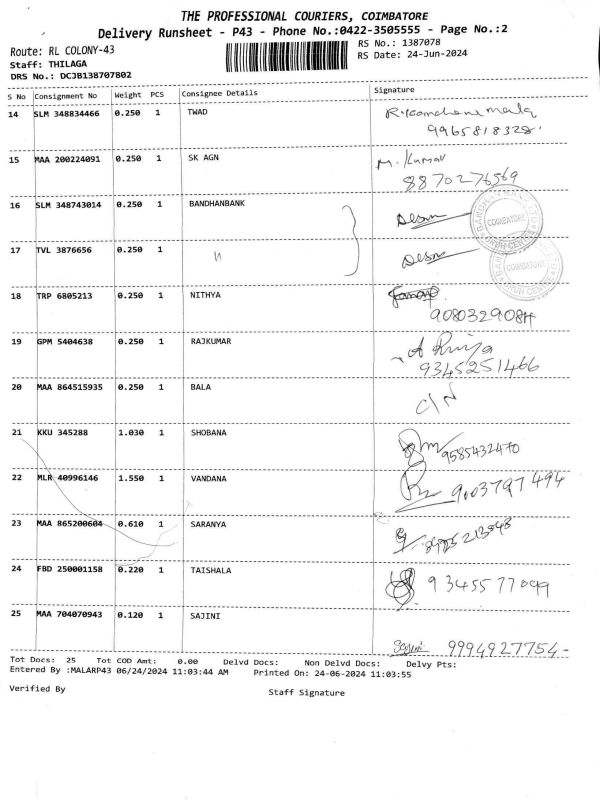 THE PROFESSIONAL COURIERS, COIMBATORE
Delivery Runsheet - P43 - Phone No.:0422-3505555 - Page No.:2
Route: RL COLONY-43
RS No.: 1387078
Staff: THILAGA
RS Date: 24-Jun-2024
DRS No.: DCJB138707802
S No Consignment No Weight PCS Consignee Details Signature
14 SLM 348834466 0.250 1 TWAD
9965818328
15 MAA 200224091 0.250 1 SK AGN M. Kumar
8870276569
16 SLM 348743014 0.250 1 BANDHANBANK
COIMBATORE
17 TVL 3876656 0.250 1 "
COIMBATORE
18 TRP 6805213 0.250 1 NITHYA
19 GPM 5404638 0.250 1 RAJKUMAR
9345251466
20 MAA 864515935 0.250 1 BALA C/N
21 KKU 345288 1.030 1 SHOBANA
9585432470
22 MLR 40996146 1.550 1 VANDANA 9003797494
23 MAA 865200604 0.610 1 SARANYA
24 FBD 250001158 0.220 1 TAISHALA 9345577099
25 MAA 704070943 0.120 1 SAJINI
Sajini 9994927754-
Tot Docs: 25 Tot COD Amt: 0.00 Delvd Docs: Non Delvd Docs: Delvy Pts:
Entered By :MALARP43 06/24/2024 11:03:44 AM Printed On: 24-06-2024 11:03:55
Verified By Staff Signature